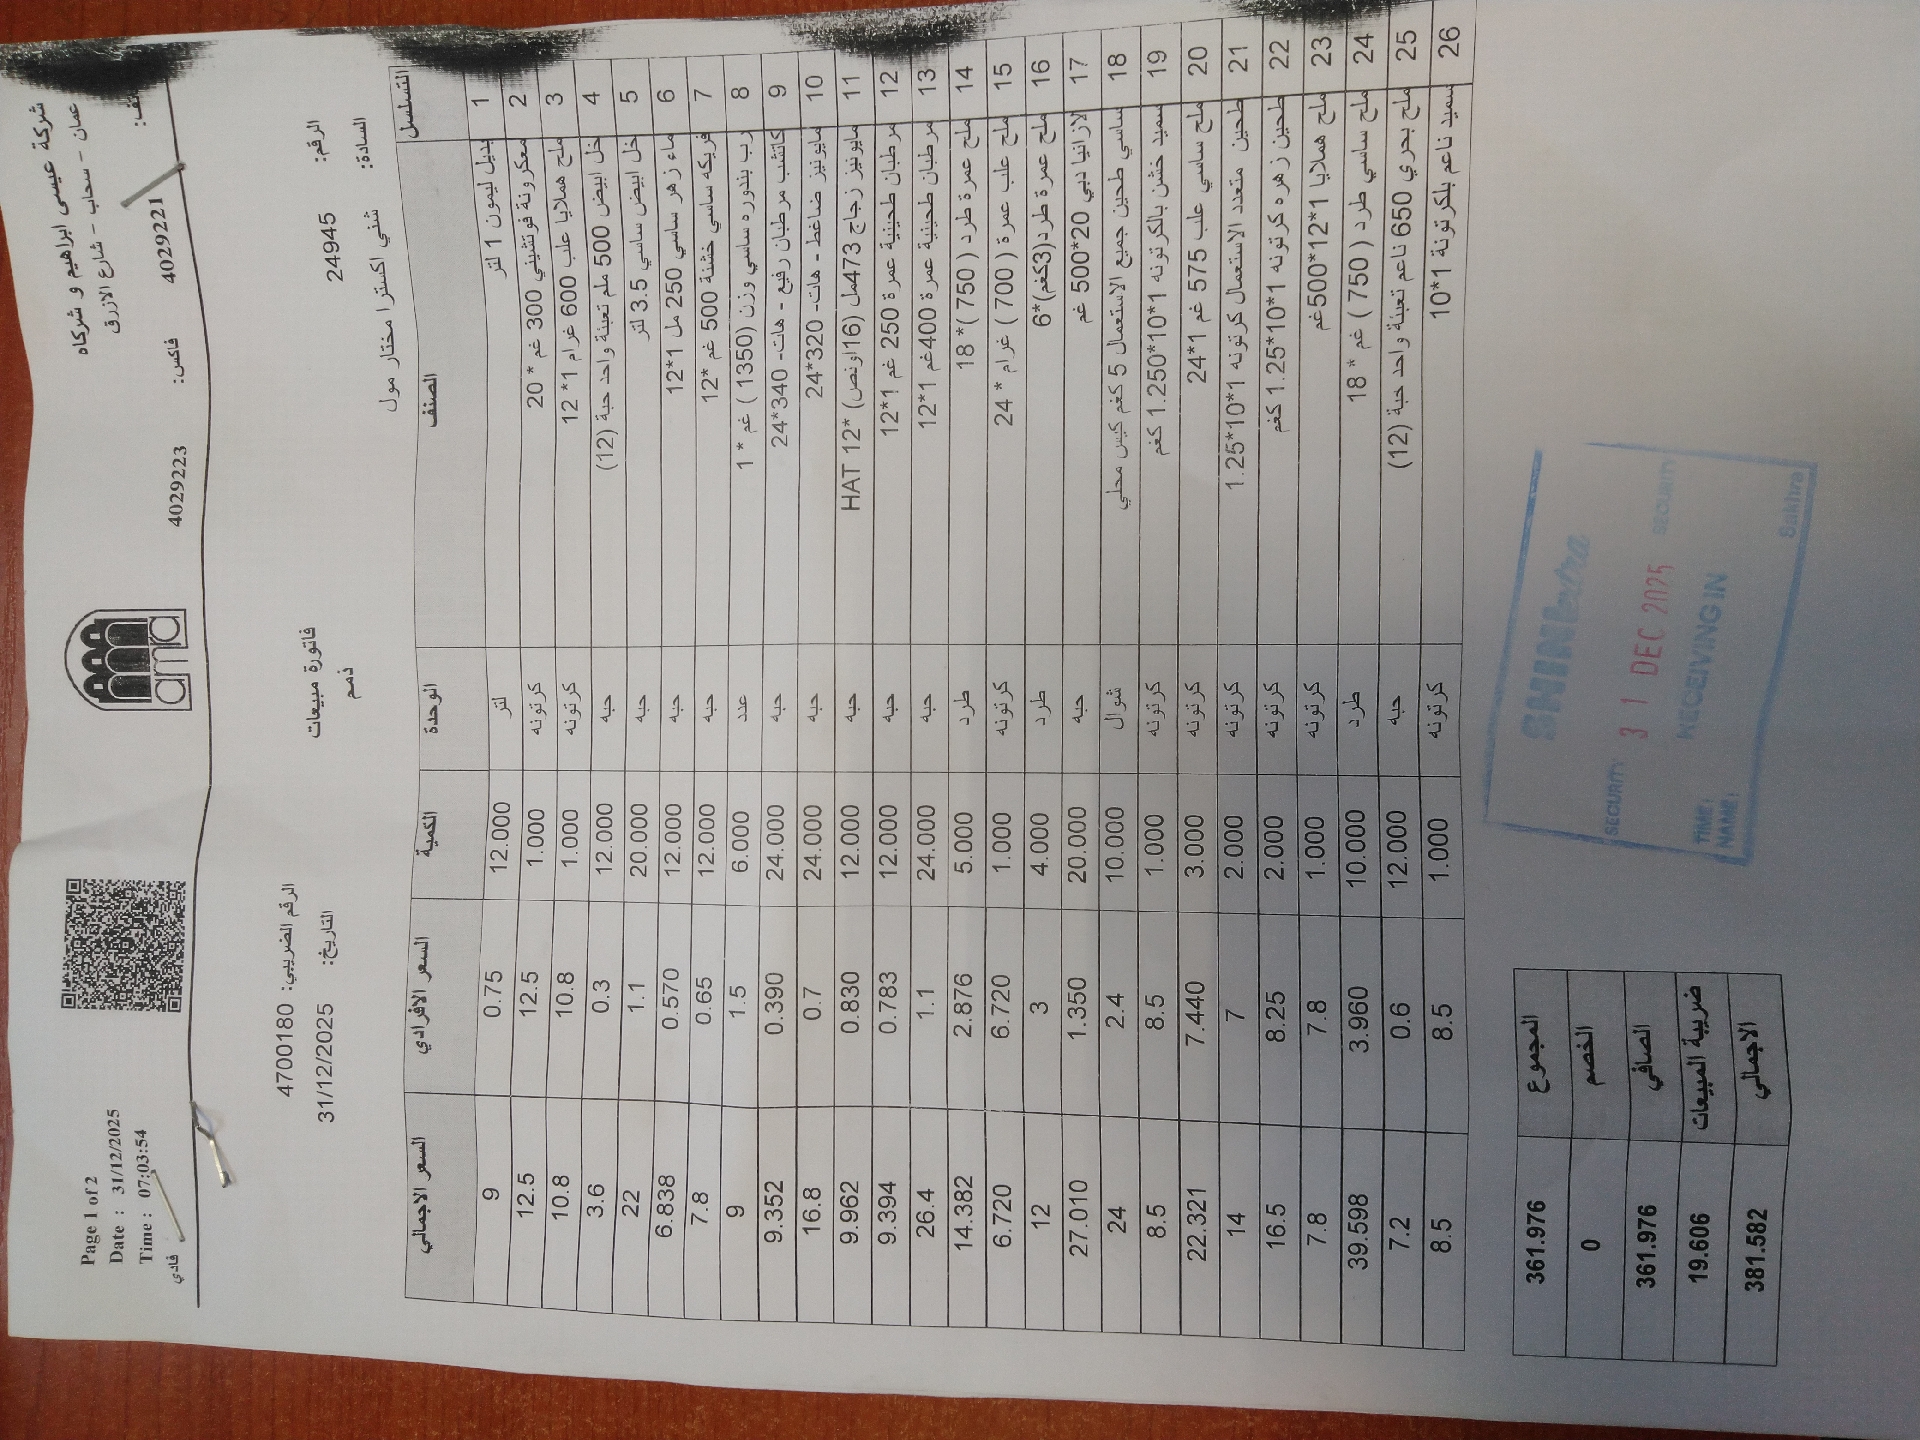 شركة عيسى ابراهيم و شركاه
عمان - سحاب - شارع الازرق
4029221 فاكس: 4029223
amra
Page 1 of 2
Date : 31/12/2025
Time : 07:03:54
فادي
الرقم: 24945 فاتورة مبيعات الرقم الضريبي: 4700180
السادة: شني اكسترا مختار مول ذمم التاريخ: 31/12/2025
التسلسل الصنف الوحدة الكمية السعر الافرادي السعر الاجمالي
1 بديل ليمون 1 لتر لتر 12.000 0.75 9
2 معكرونة فوتشيني 300 غم * 20 كرتونه 1.000 12.5 12.5
3 ملح هملايا علب 600 غرام 1* 12 كرتونه 1.000 10.8 10.8
4 خل ابيض 500 ملم تعبئة واحد حبة (12) حبه 12.000 0.3 3.6
5 خل ابيض ساسي 3.5 لتر حبه 20.000 1.1 22
6 ماء زهر ساسي 250 مل 1*12 حبه 12.000 0.570 6.838
7 فريكه ساسي خشنة 500 غم *12 حبه 12.000 0.65 7.8
8 رب بندوره ساسي وزن (1350 ) غم * 1 عدد 6.000 1.5 9
9 كاتشب مرطبان رفيع - هات- 340*24 حبه 24.000 0.390 9.352
10 مايونيز ضاغط - هات- 320*24 حبه 24.000 0.7 16.8
11 مايونيز زجاج 473مل (16اونص) *12 HAT حبه 12.000 0.830 9.962
12 مرطبان طحينية عمرة 250 غم 1*12 حبه 12.000 0.783 9.394
13 مرطبان طحينية عمرة 400غم 1*12 حبه 24.000 1.1 26.4
14 ملح عمرة طرد ( 750 )* 18 طرد 5.000 2.876 14.382
15 ملح علب عمرة ( 700 ) غرام * 24 كرتونه 1.000 6.720 6.720
16 ملح عمرة طرد(3كغم)*6 طرد 4.000 3 12
17 لازانيا دبي 20*500 غم حبه 20.000 1.350 27.010
18 ساسي طحين جميع الاستعمال 5 كغم كيس محلي شوال 10.000 2.4 24
19 سميد خشن بالكرتونه 1*10*1.250 كغم كرتونه 1.000 8.5 8.5
20 ملح ساسي علب 575 غم 1*24 كرتونه 3.000 7.440 22.321
21 طحين متعدد الاستعمال كرتونه 1*10*1.25 كرتونه 2.000 7 14
22 طحين زهره كرتونه 1*10*1.25 كغم كرتونه 2.000 8.25 16.5
23 ملح هملايا 1*12*500غم كرتونه 1.000 7.8 7.8
24 ملح ساسي طرد ( 750 ) غم * 18 طرد 10.000 3.960 39.598
25 ملح بحري 650 ناعم تعبئة واحد حبة (12) حبه 12.000 0.6 7.2
26 سميد ناعم بلكرتونة 1*10 كرتونه 1.000 8.5 8.5
المجموع 361.976
الخصم 0
الصافي 361.976
ضريبة المبيعات 19.606
الاجمالي 381.582
SHINI extra
SECURITY 3 1 DEC 2025 SECURITY
RECEIVING IN
TIME:
NAME: Sakhra